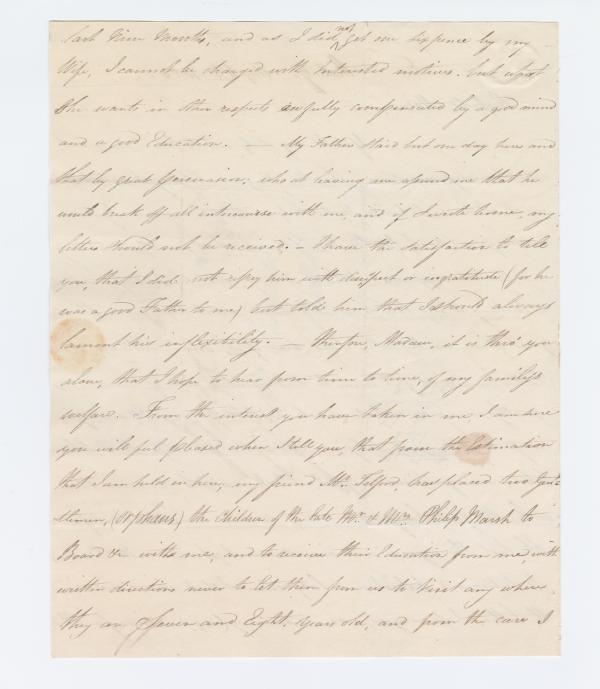 last Nine Months, and as I did not get one sixpence by my
Wife, I cannot be charged with Interested motives. but what
She wants in other respects is fully compensated by a good mind
and a good Education. — My Father staid but one day here and
that by great persuasion; who at leaving me assured me that he
would break off all intercourse with me, and if I wrote home, my
letters should not be received. — I have the satisfaction to tell
you, that I did not repay him with disrespect or ingratitude (for he
was a good Father to me) but told him that I should always
lament his inflexibility. — Therefore, Madam, it is thro' you
alone, that I hope to hear from time to time, of my family's
welfare. From the interest you have taken in me, I am sure
you will feel pleased when I tell you, that from the Estimation
that I am held in here, my friend Mr. Telford, has placed two Gent-
tlemen, (orphans) the Children of the late Mr. & Mrs. Philip Marsh to
Board &c with me, and to receive their Education from me, with
written directions never to let them from us to Visit any where.
they are Seven and Eight Years old, and from the care I